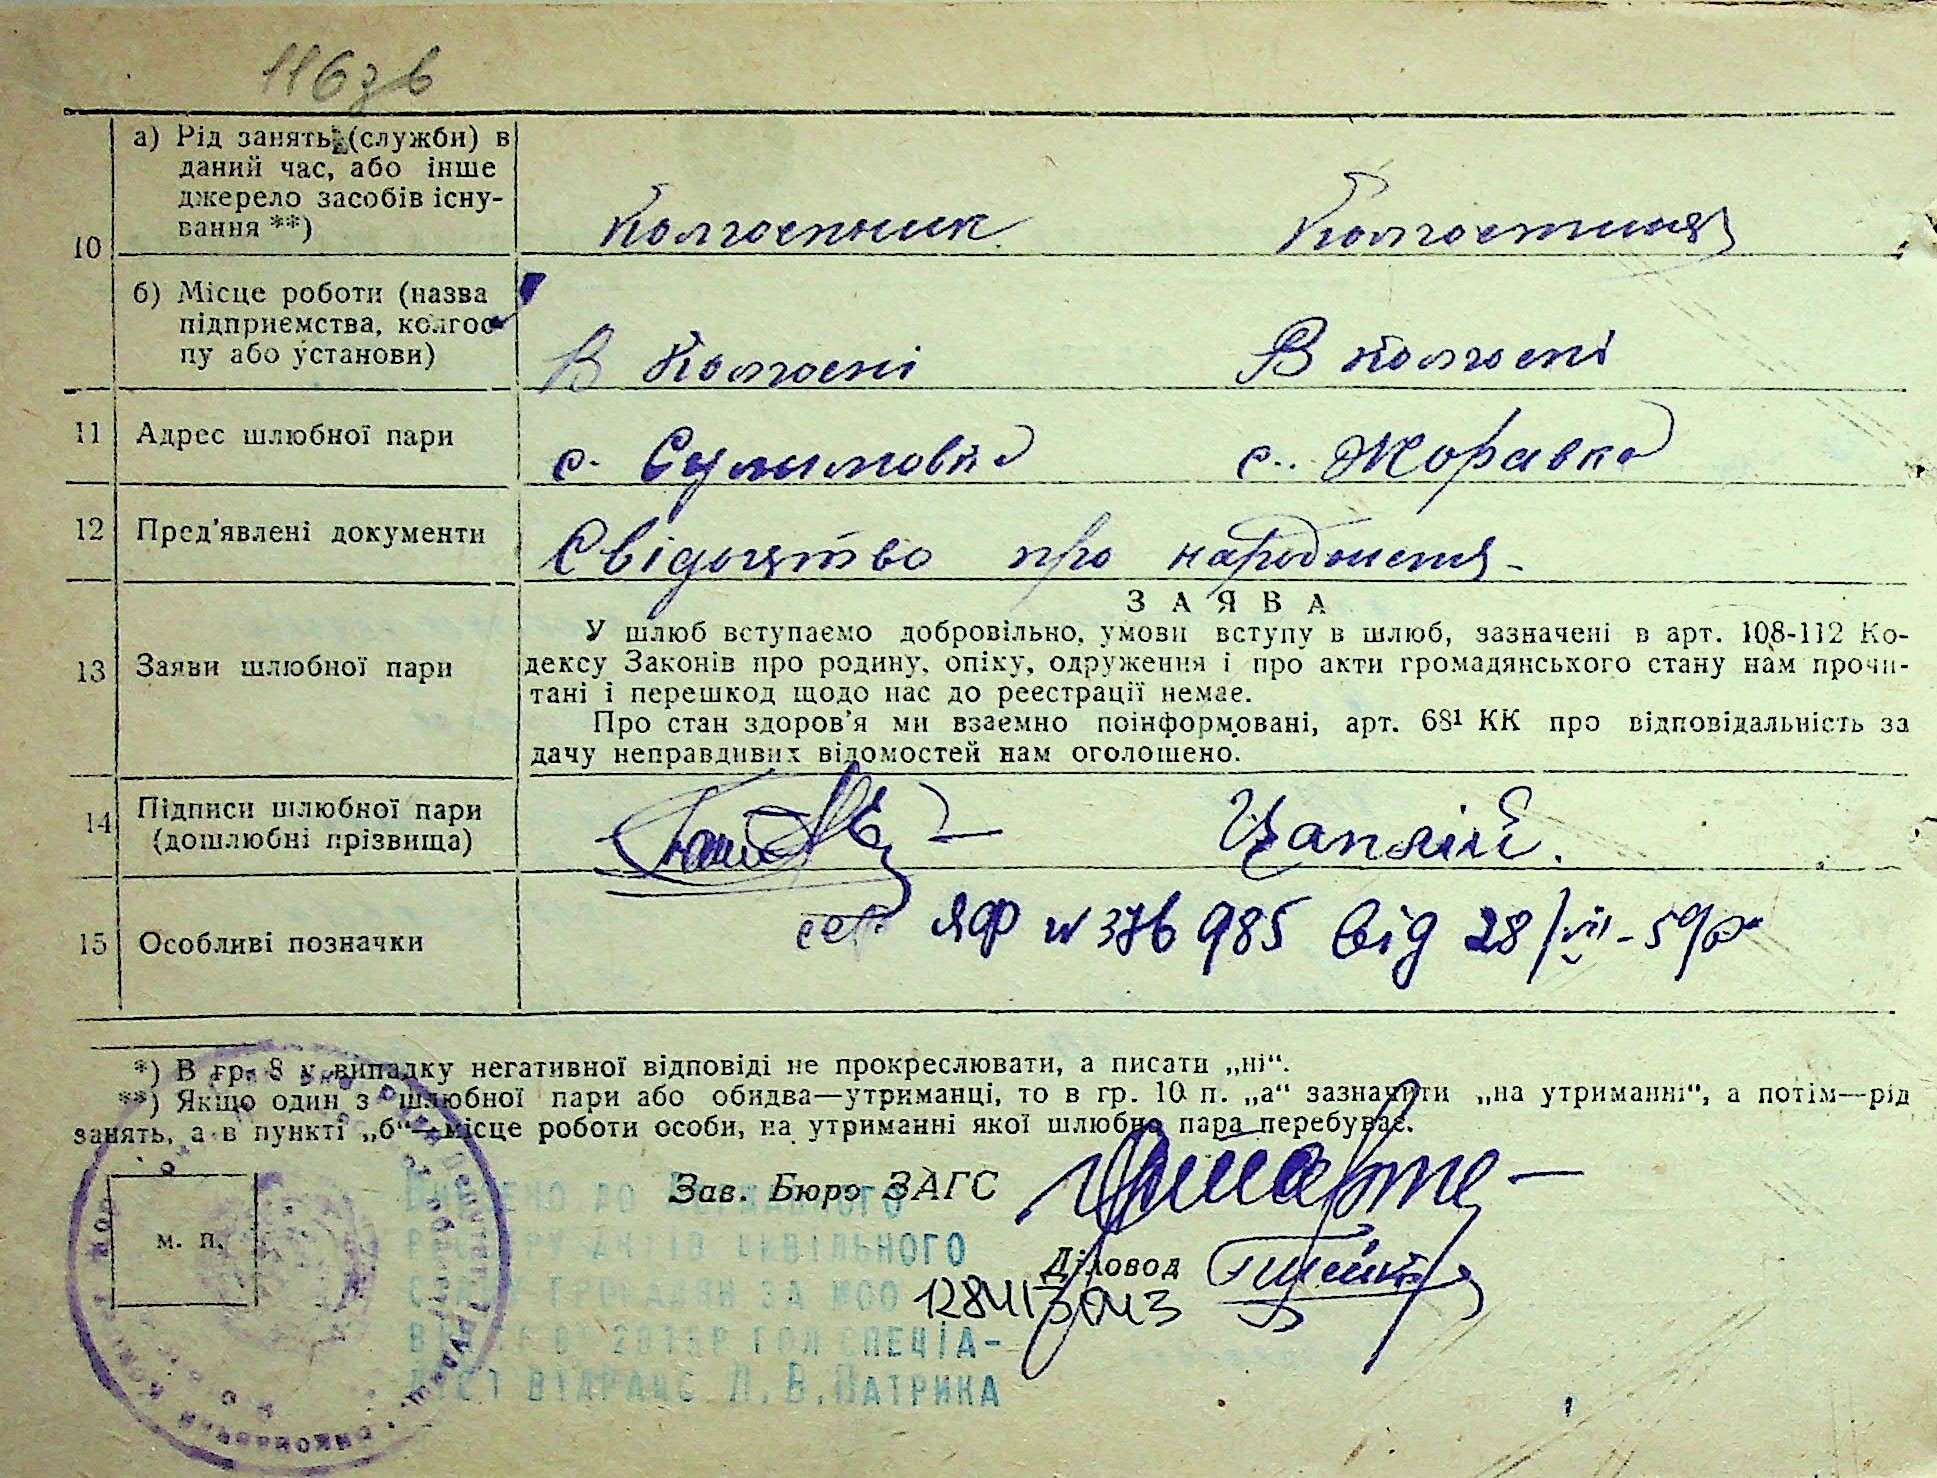 116 зв
10 а) Рід занять (служби) в
даний час, або інше
джерело засобів існу-
вання **)
Колгоспник Колгоспниця
б) Місце роботи (назва
підприємства, колгос-
пу або установи)
В колгоспі В колгоспі
11 Адрес шлюбної пари с. Сулимовка с. Жоравка
12 Пред'явлені документи Свідоцтво про народження
13 Заяви шлюбної пари
ЗАЯВА
У шлюб вступаємо добровільно, умови вступу в шлюб, зазначені в арт. 108-112 Ко-
дексу Законів про родину, опіку, одруження і про акти громадянського стану нам прочи-
тані і перешкод щодо нас до реєстрації немає.
Про стан здоров'я ми взаємно поінформовані, арт. 68¹ КК про відповідальність за
дачу неправдивих відомостей нам оголошено.
14 Підписи шлюбної пари
(дошлюбні прізвища)
Цаплій.
15 Особливі позначки сер ЯФ N 376985 від 28/VII-59р
*) В гр. 8 у випадку негативної відповіді не прокреслювати, а писати „ні“.
**) Якщо один з шлюбної пари або обидва—утриманці, то в гр. 10 п. „а“ зазначити „на утриманні“, а потім—рід
занять, а в пункті „б“—місце роботи особи, на утриманні якої шлюбна пара перебуває.
Зав. Бюро ЗАГС
м. п.
Діловод
ВНЕСЕНО ДО ДЕРЖАВНОГО
РЕЄСТРУ АКТІВ ЦИВІЛЬНОГО
СТАНУ ГРОМАДЯН ЗА №00
СПЕЦІА-
ЛІСТ ВІДРАЦС Л.В.ПАТРИКА